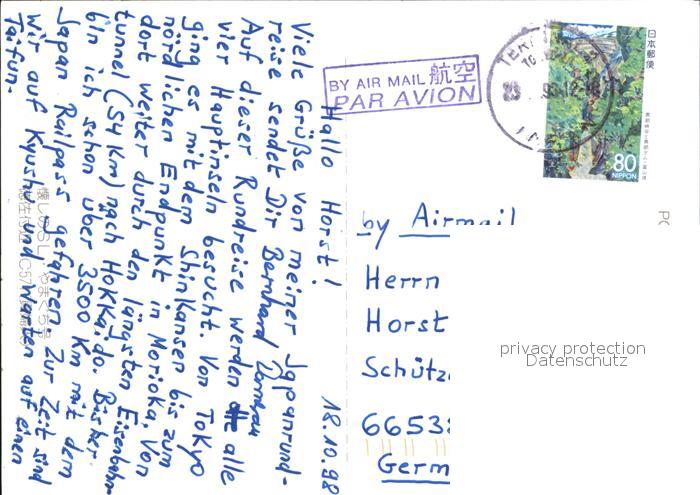 Hallo Horst! 18.10.98
Viele Grüße von meiner Japanrund-
reise sendet Dir Bernhard
Auf dieser Rundreise werden alle
vier Hauptinseln besucht. Von Tokyo
ging es mit dem Shinkansen bis zum
nördlichen Endpunkt in Morioka. Von
dort weiter durch den längsten Eisenbahn-
tunnel (54 Km) nach Hokkaido. Bisher
bin ich schon über 3500 Km mit dem
Japan Railpass gefahren. Zur Zeit sind
wir auf Kyushu und warten auf einen
Taifun.
BY AIR MAIL 航空
PAR AVION
日本郵便
80
NIPPON
by Airmail
Herrn
Horst
Schütz
6653
Germ
privacy protection
Datenschutz